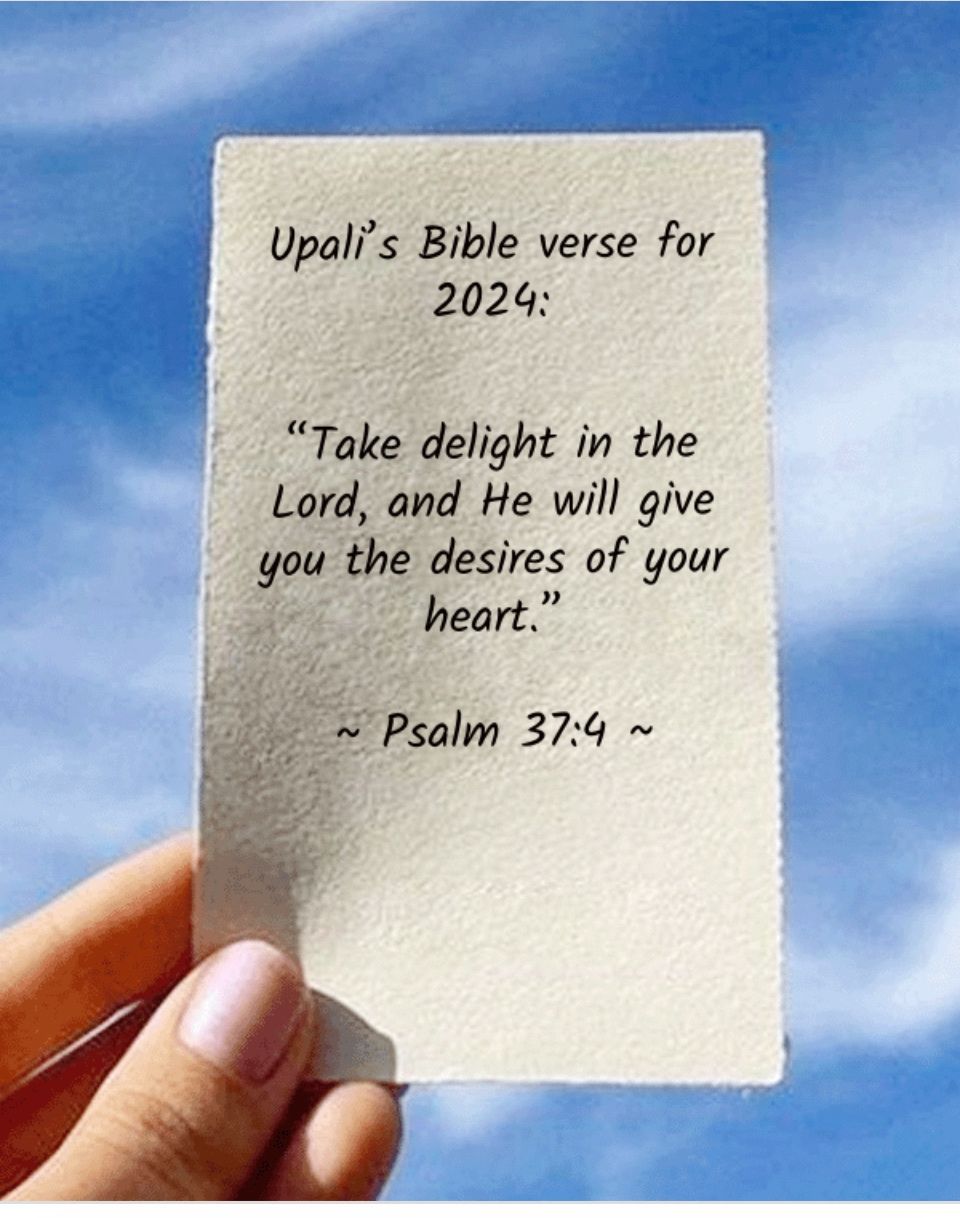 Upali’s Bible verse for
2024:
“Take delight in the
Lord, and He will give
you the desires of your
heart.”
~ Psalm 37:4 ~